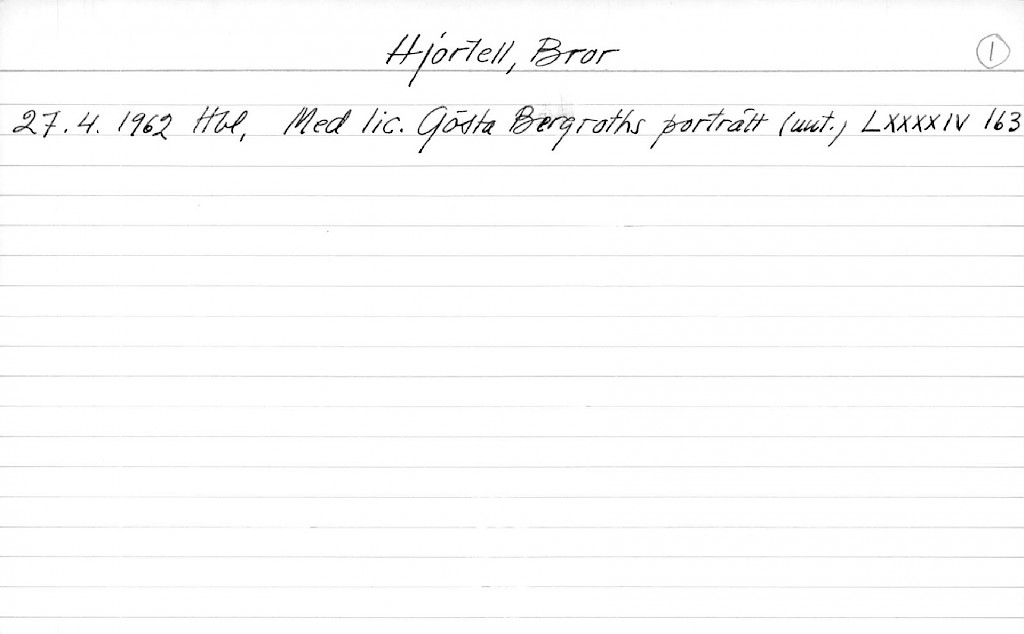 Hjortell, Bror 1
27.4. 1962 Hbl, Med lic. Gösta Bergroths porträtt (uut.) LXXXXIV 163